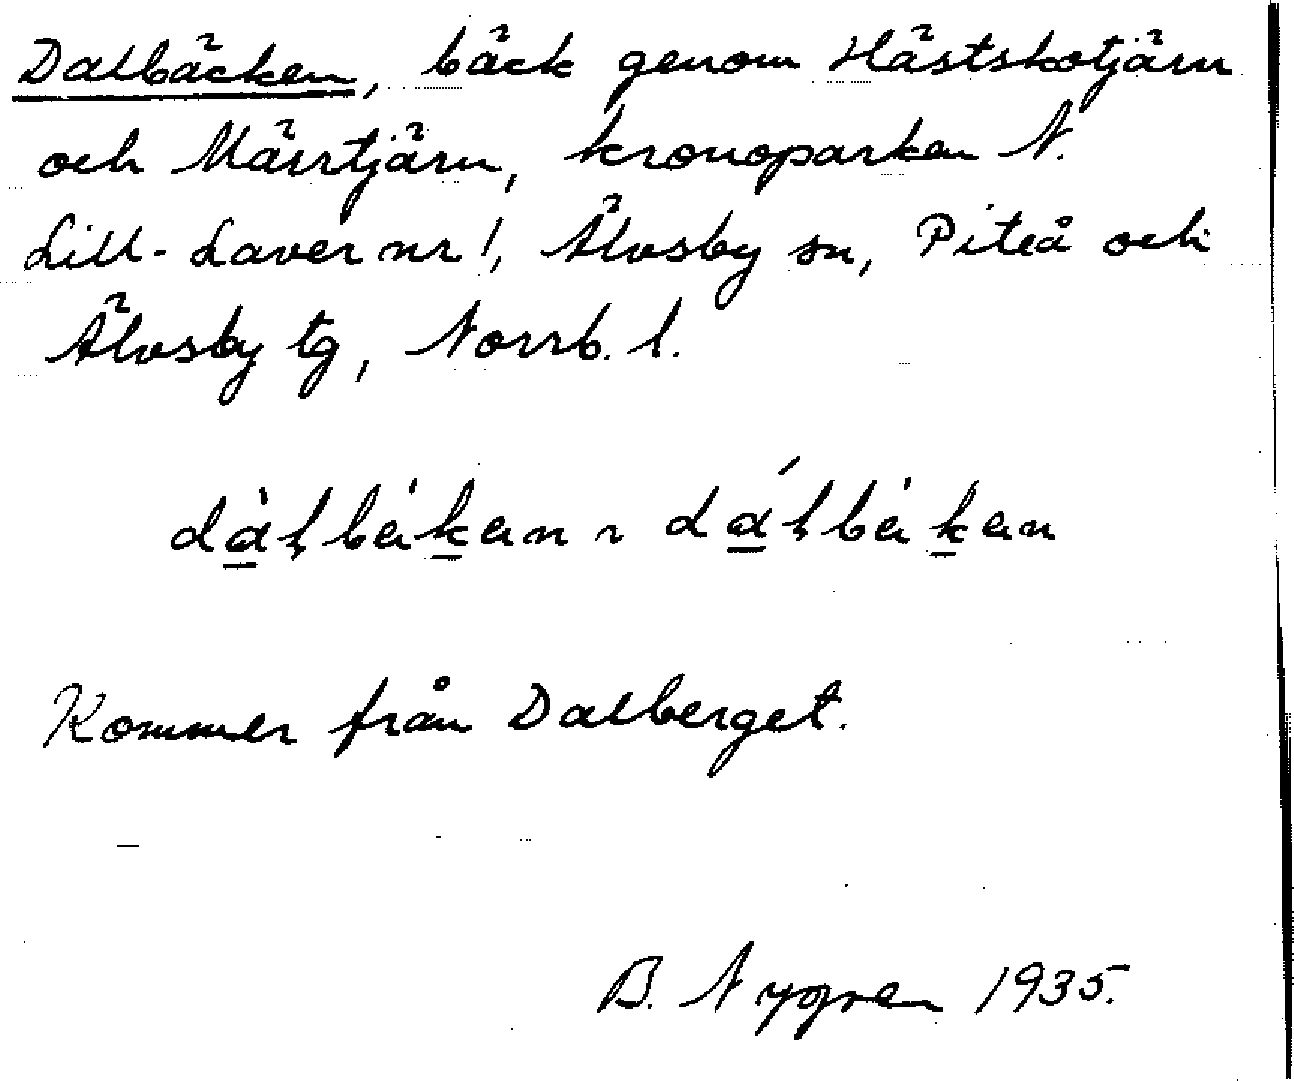 Dalbäcken, bäck genom Hästskotjärn
och Märrtjärn, kronoparken N.
Lill-Laver nr 1, Älvsby sn, Piteå och
Älvsby tg, Norrb. l.
Kommer från Dalberget.
B. Nygren 1935.